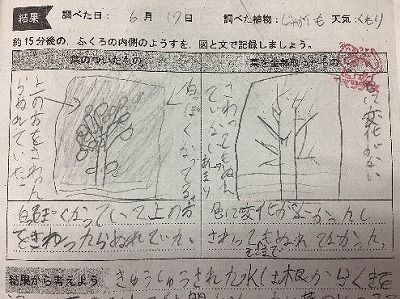 結果 調べた日：6月17日 調べた植物：じゃがいも 天気：くもり
約15分後の、ふくろの内側のようすを、図と文で記録しましょう。
葉のついたもの
上の方をさわったら
ぬれていた
白っぽくなってる
さわってもぬれ
ていない
色に変化がない
白っぽくなっていて上の方
をさわったらぬれていた。
色に変化がなかったし
さわってもぬれてなかった。
結果から考えよう
きゅうしゅうされた水は根からくきを